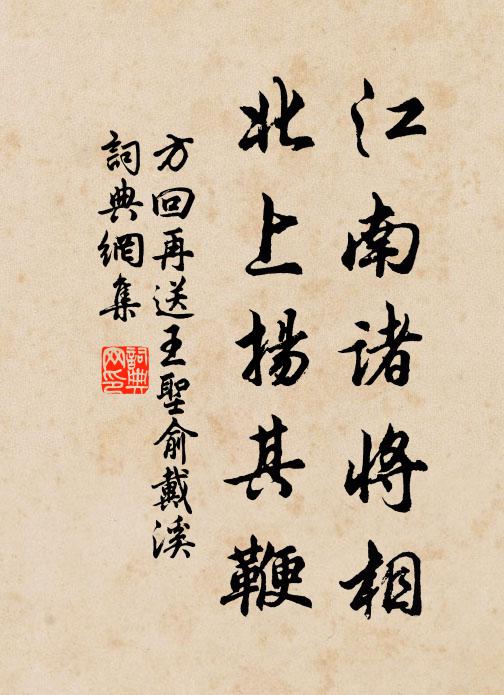 江南诸将相
北上揚其鞭
方回再送王聖俞戴溪
詞典網集
詞典网印